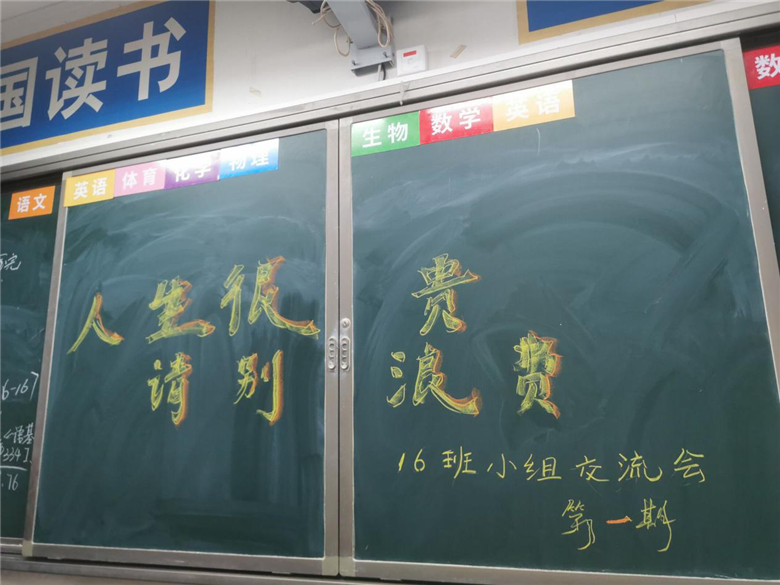 国读书
语文 英语 体育 化学 物理 生物 数学 英语 数
人生很贵
请别浪费
16班小组交流会
第一期
6-167
语基
3347
.76